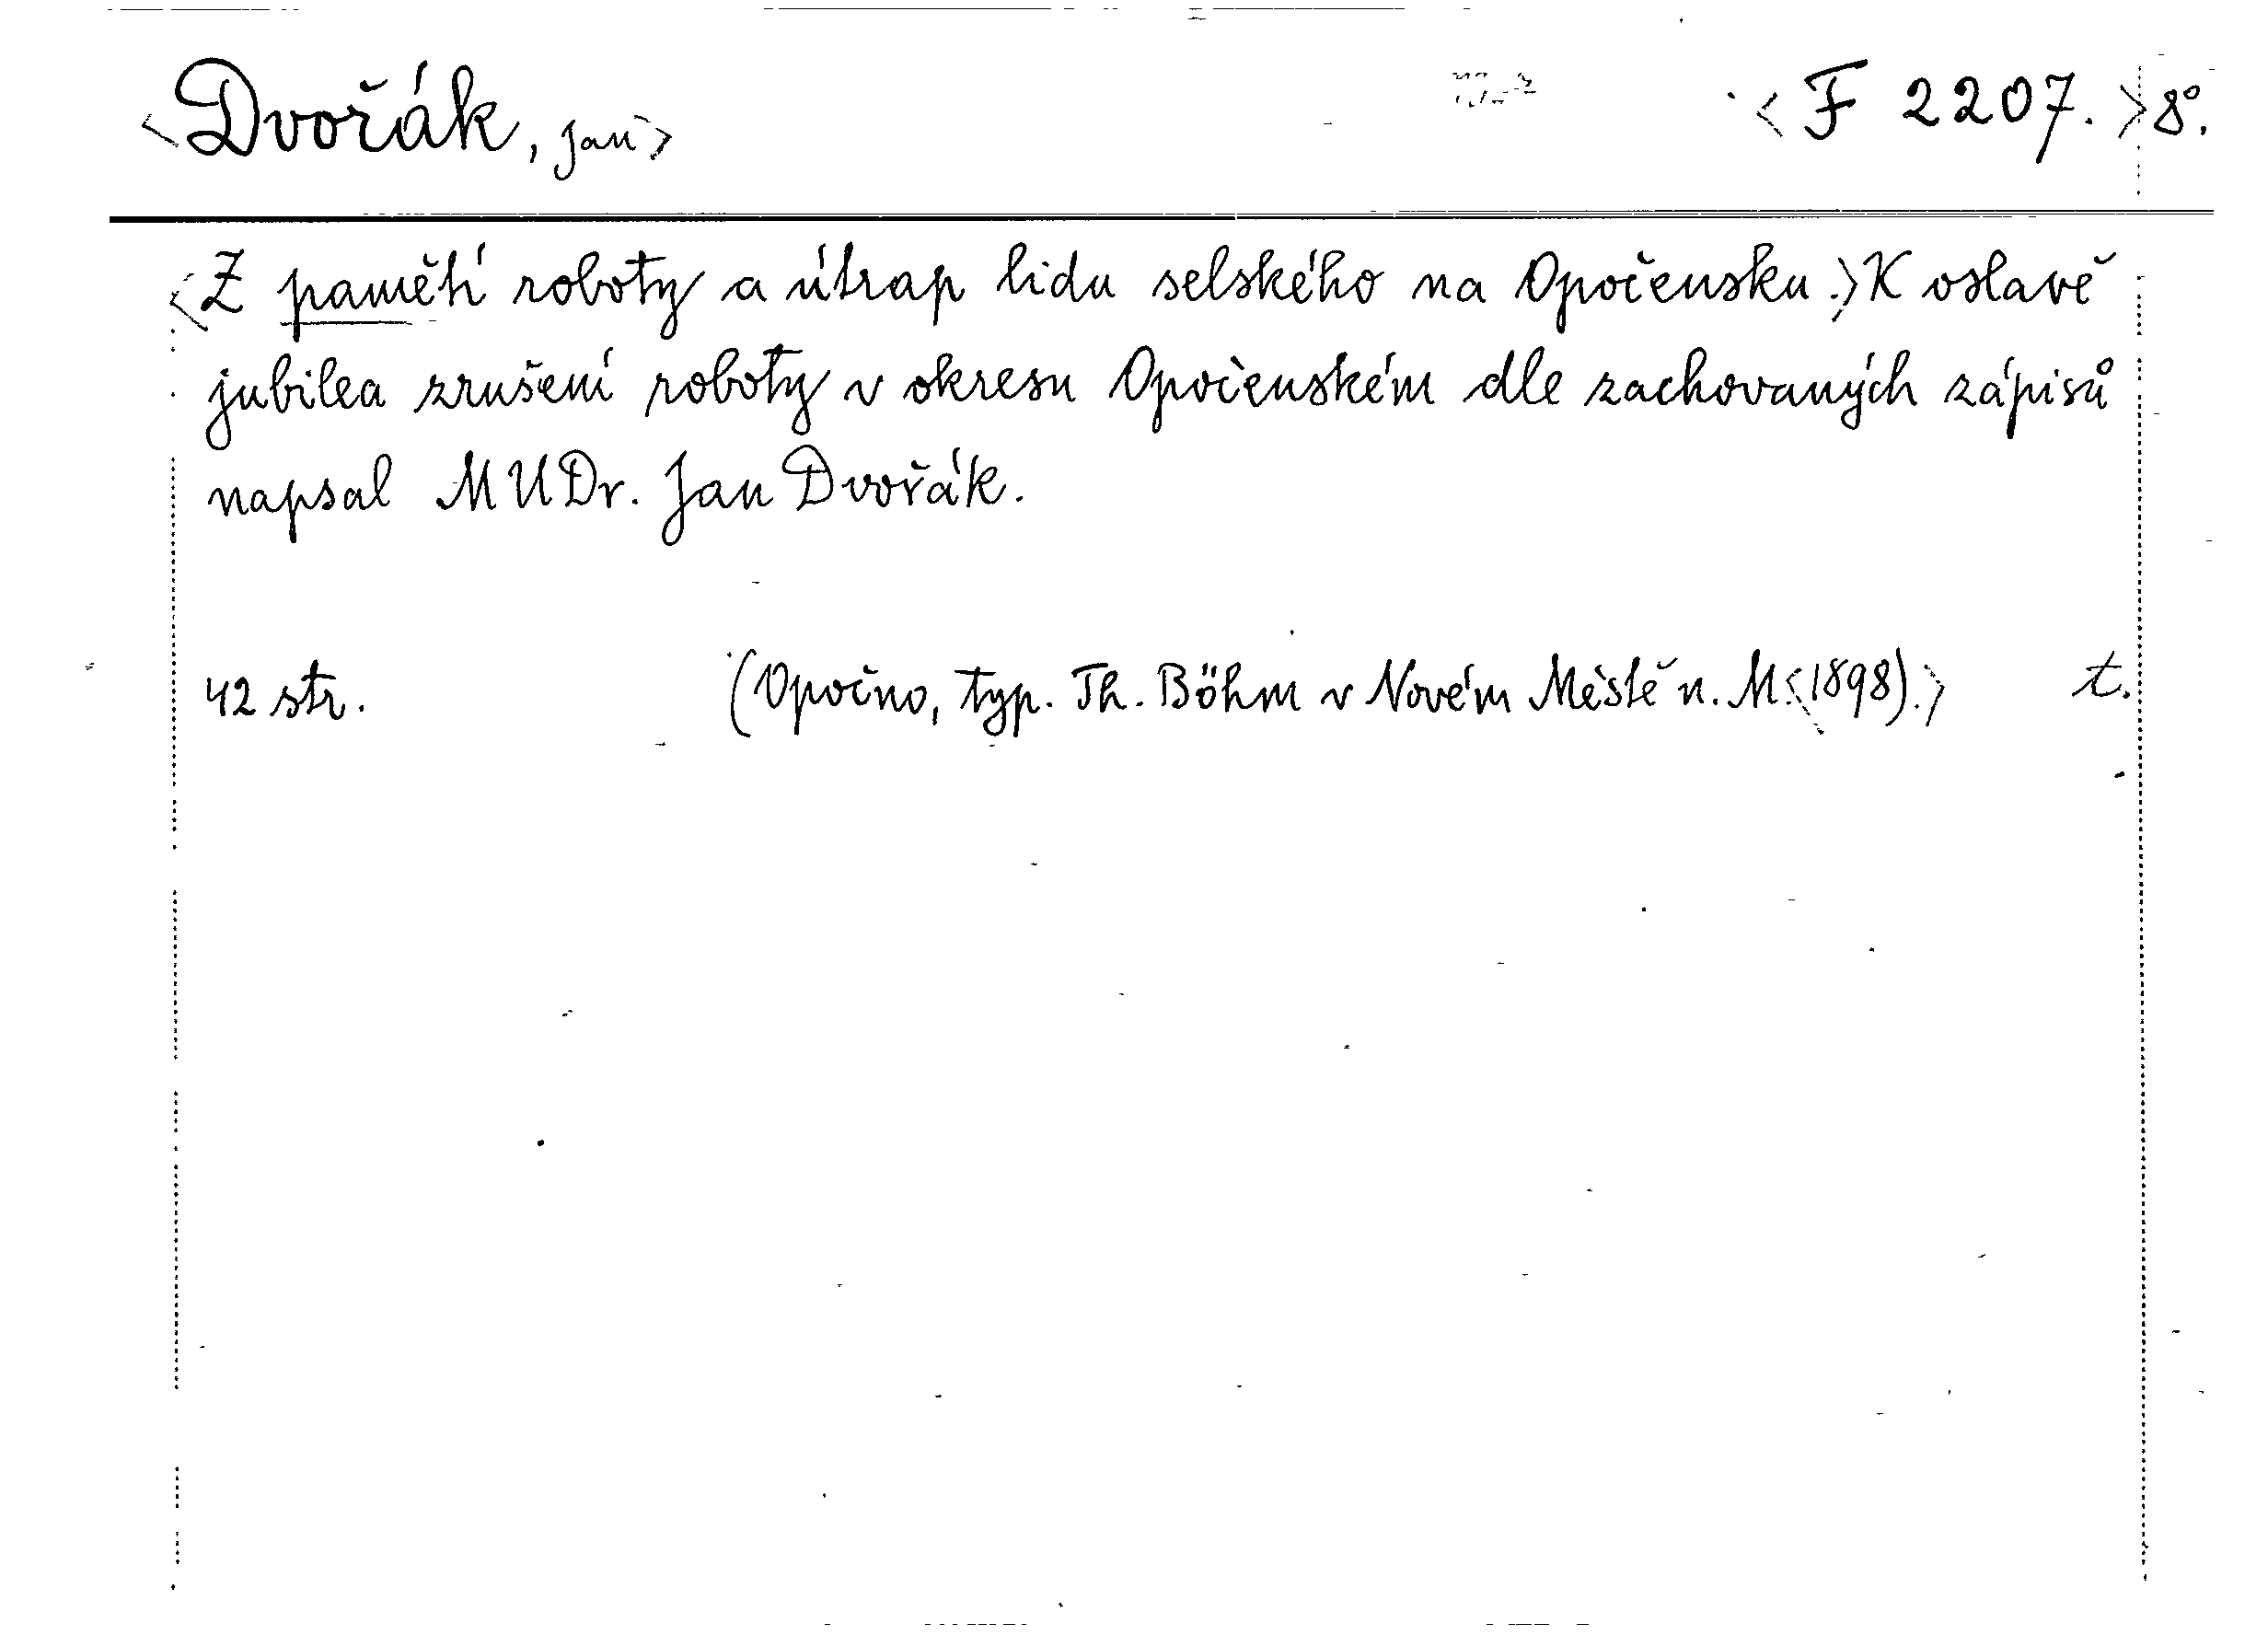 <Dvořák, Jan> <F 2207.> 8°.
<Z pamětí roboty a útrap lidu selského na Opočensku.> K oslavě
jubilea zrušení roboty v okresu Opočenském dle zachovaných zápisů
napsal MUDr. Jan Dvořák.
42 str. (Opočno, typ. Th. Böhm v Novém Městě n. M. <1898).> t.